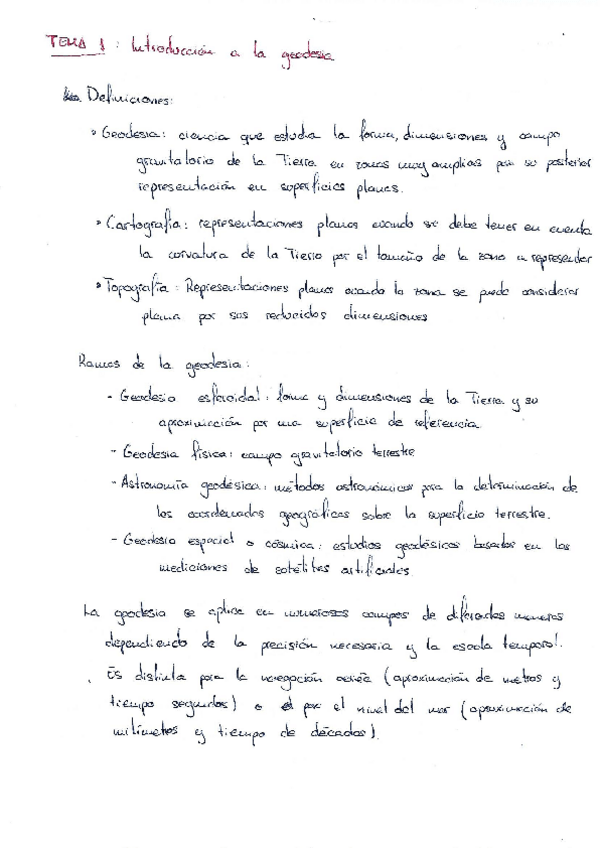 TEMA 1: Introducción a la geodesia
Definiciones:
• Geodesia: ciencia que estudia la forma, dimensiones y campo
gravitatorio de la Tierra en zonas muy amplias para su posterior
representación en superficies planas.
• Cartografía: representaciones planas cuando se debe tener en cuenta
la curvatura de la Tierra por el tamaño de la zona a representar
• Topografía: Representaciones planas cuando la zona se puede considerar
plana por sus reducidas dimensiones
Ramas de la geodesia:
- Geodesia esferoidal: forma y dimensiones de la Tierra y su
aproximación por una superficie de referencia.
- Geodesia física: campo gravitatorio terrestre
- Astronomía geodésica: métodos astronómicos para la determinación de
las coordenadas geográficas sobre la superficie terrestre.
- Geodesia espacial o cósmica: estudios geodésicos basados en las
mediciones de satélites artificiales.
La geodesia se aplica en numerosos campos de diferentes maneras
dependiendo de la precisión necesaria y la escala temporal.
Es distinta para la navegación aérea (aproximación de metros y
tiempo segundos) o para el nivel del mar (aproximación de
milímetros y tiempo de décadas).